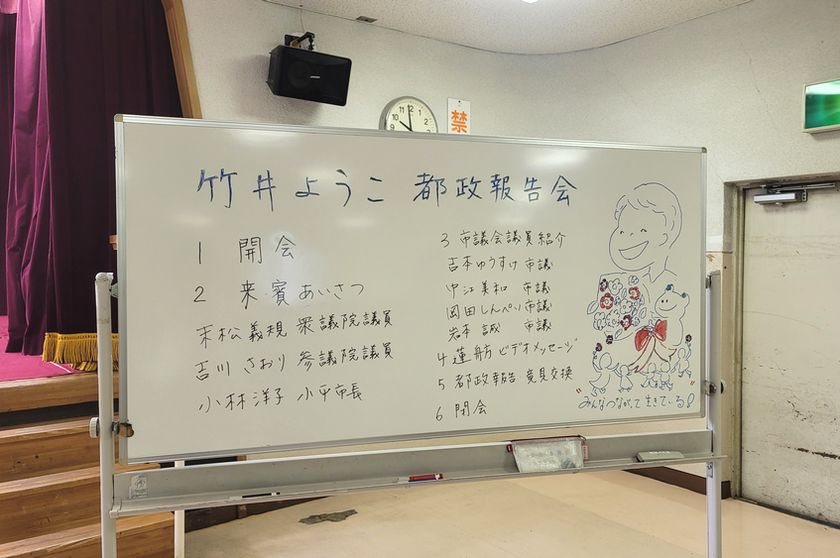 竹井ようこ 都政報告会
1 開会
2 来賓あいさつ
末松義規 衆議院議員
吉川さおり 参議院議員
小林洋子 小平市長
3 市議会議員紹介
吉本ゆうすけ 市議
中江美和 市議
岡田しんぺい 市議
岩本誠 市議
4 蓮舫 ビデオメッセージ
5 都政報告 意見交換
6 閉会
"みんなつながって生きている!"
禁